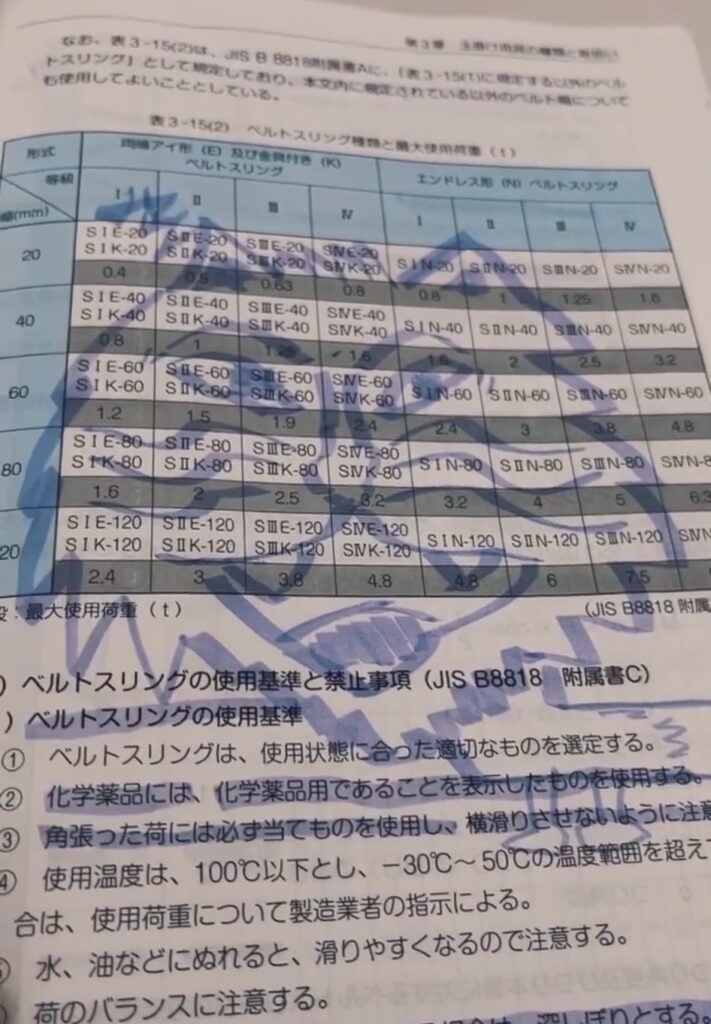 第3章 玉掛け用具の種類と取扱い
なお、表3-15(2)は、JIS B 8818附属書Aに、「表3-15(1)に規定する以外のベル
トスリング」として規定しており、本文内に規定されている以外のベルト幅について
も使用してよいこととしている。
表3-15(2) ベルトスリング種類と最大使用荷重(t)
形式 両端アイ形(E)及び金具付き(K) エンドレス形(N)ベルトスリング
ベルトスリング
等級 Ⅰ Ⅱ Ⅲ Ⅳ Ⅰ Ⅱ Ⅲ Ⅳ
幅(mm)
20 SⅠE-20 SⅡE-20 SⅢE-20 SⅣE-20 SⅠN-20 SⅡN-20 SⅢN-20 SⅣN-20
SⅠK-20 SⅡK-20 SⅢK-20 SⅣK-20
0.4 0.5 0.63 0.8 0.8 1 1.25 1.6
40 SⅠE-40 SⅡE-40 SⅢE-40 SⅣE-40 SⅠN-40 SⅡN-40 SⅢN-40 SⅣN-40
SⅠK-40 SⅡK-40 SⅢK-40 SⅣK-40
0.8 1 1.25 1.6 1.6 2 2.5 3.2
60 SⅠE-60 SⅡE-60 SⅢE-60 SⅣE-60 SⅠN-60 SⅡN-60 SⅢN-60 SⅣN-60
SⅠK-60 SⅡK-60 SⅢK-60 SⅣK-60
1.2 1.5 1.9 2.4 2.4 3 3.8 4.8
80 SⅠE-80 SⅡE-80 SⅢE-80 SⅣE-80 SⅠN-80 SⅡN-80 SⅢN-80 SⅣN-8
SⅠK-80 SⅡK-80 SⅢK-80 SⅣK-80
1.6 2 2.5 3.2 3.2 4 5 6.3
20 SⅠE-120 SⅡE-120 SⅢE-120 SⅣE-120 SⅠN-120 SⅡN-120 SⅢN-120 SⅣN
SⅠK-120 SⅡK-120 SⅢK-120 SⅣK-120
2.4 3 3.8 4.8 4.8 6 7.5
段:最大使用荷重(t) (JIS B8818 附属
) ベルトスリングの使用基準と禁止事項(JIS B8818 附属書C)
) ベルトスリングの使用基準
① ベルトスリングは、使用状態に合った適切なものを選定する。
② 化学薬品には、化学薬品用であることを表示したものを使用する。
③ 角張った荷には必ず当てものを使用し、横滑りさせないように注意
④ 使用温度は、100℃以下とし、−30℃〜50℃の温度範囲を超え
合は、使用荷重について製造業者の指示による。
⑤ 水、油などにぬれると、滑りやすくなるので注意する。
荷のバランスに注意する。